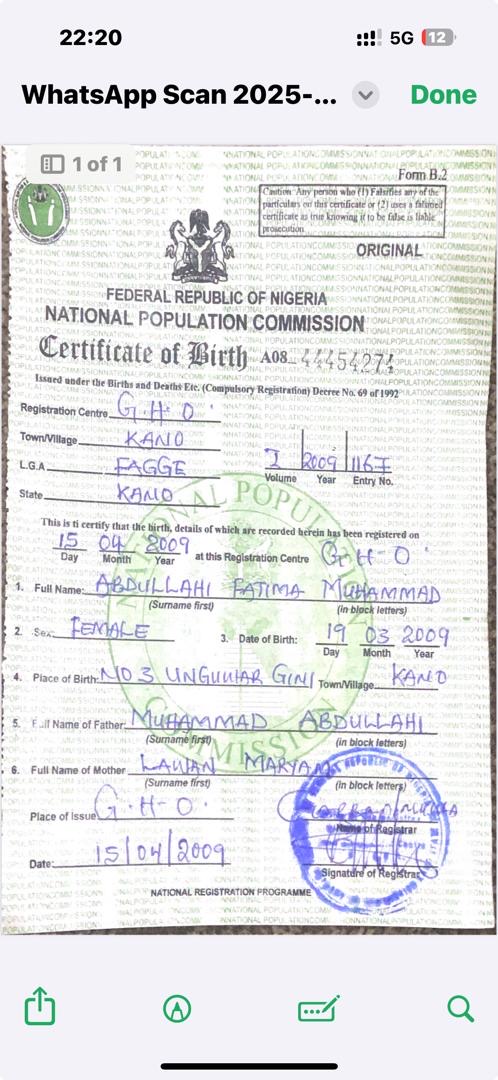 22:20
5G 12
WhatsApp Scan 2025-...
Done
1 of 1
Form B.2
Caution: Any person who (1) Falsifies any of the
particulars on this certificate or (2) uses a falsified
certificate as true knowing it to be false is liable
prosecution
ORIGINAL
FEDERAL REPUBLIC OF NIGERIA
NATIONAL POPULATION COMMISSION
Certificate of Birth A08 44454274
Issued under the Births and Deaths Etc. (Compulsory Registration) Decree No. 69 of 1992
Registration Centre G.H.O.
Town/Village KANO
L.G.A FAGGE
I 2009 1167
Volume Year Entry No.
State KANO
This is ti certify that the birth, details of which are recorded herein has been registered on
15 04 2009 at this Registration Centre G.H.O.
Day Month Year
1. Full Name: ABDULLAHI FATIMA MUHAMMAD
(Surname first) (in block letters)
2. Sex: FEMALE 3. Date of Birth: 19 03 2009
Day Month Year
4. Place of Birth: NO 3 UNGUWAR GINI Town/Village KANO
5. Full Name of Father: MUHAMMAD ABDULLAHI
(Surname first) (in block letters)
6. Full Name of Mother LAWAN MARYAM
(Surname first) (in block letters)
Place of Issue G.H.O.
Name of Registrar
Date: 15/04/2009
Signature of Registrar
NATIONAL REGISTRATION PROGRAMME